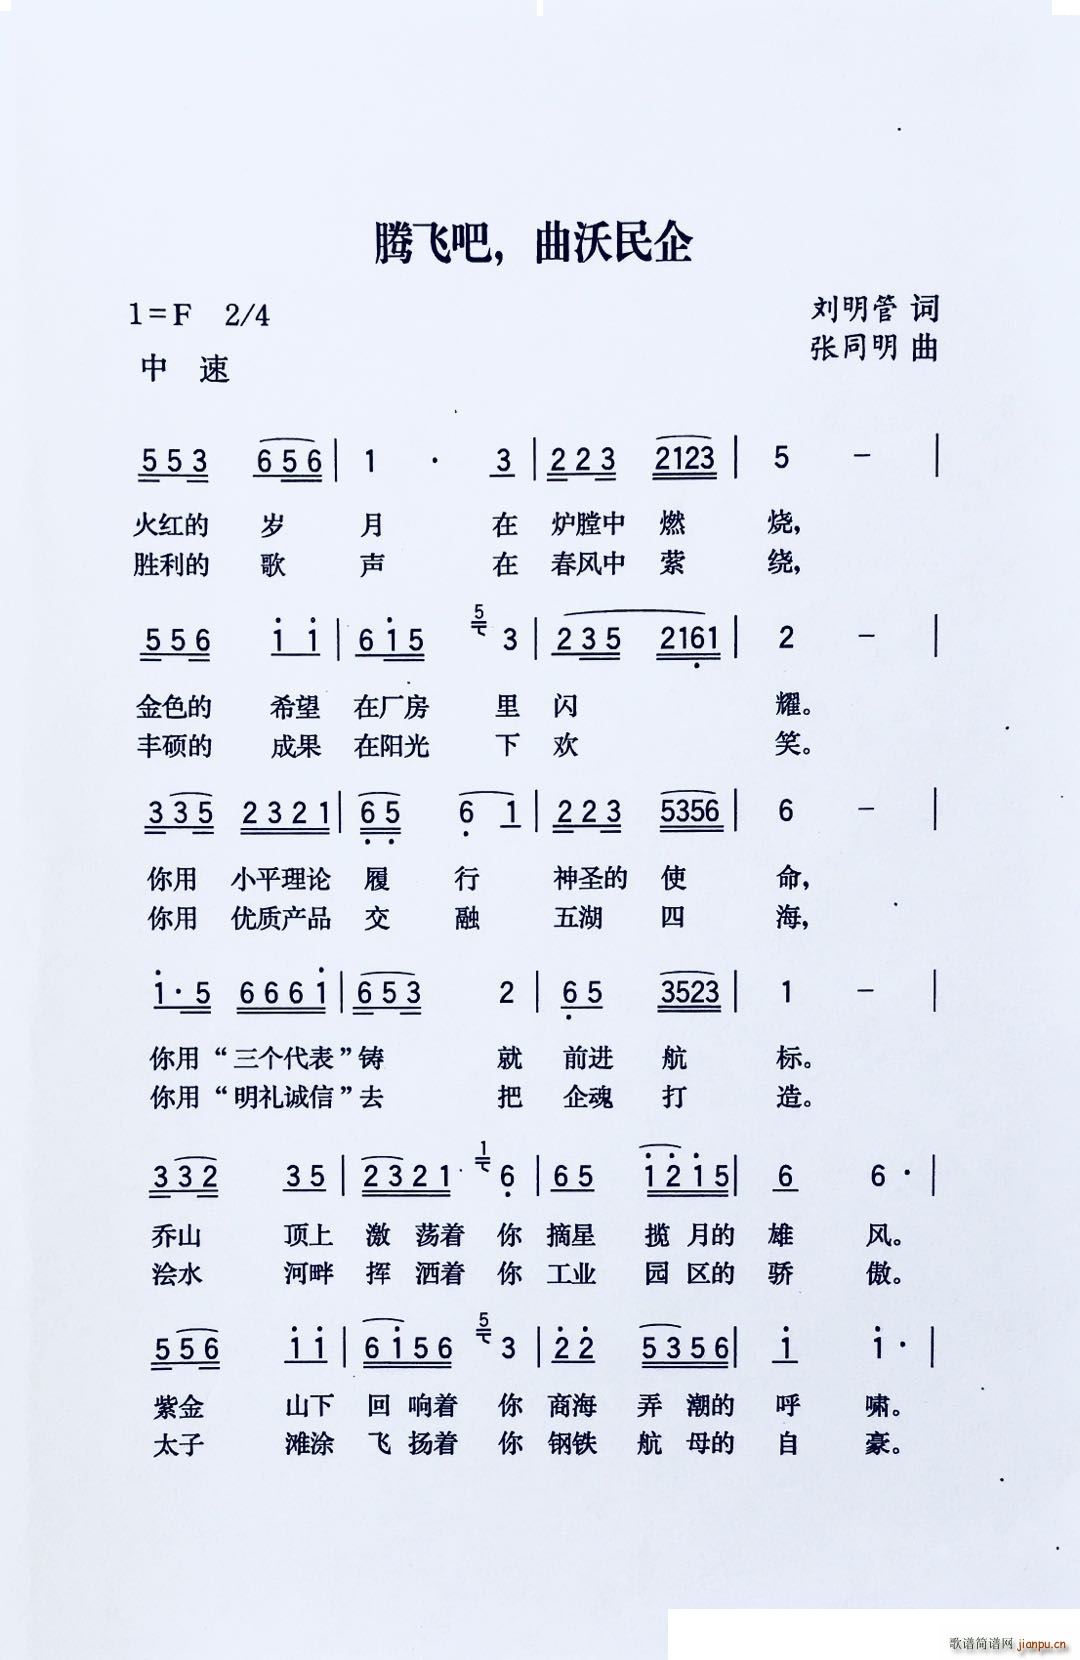 腾飞吧，曲沃民企
1=F 2/4
刘明管 词
中 速
张同明 曲
5 5 3 6 5 6 | 1 · 3 | 2 2 3 2123 | 5 － |
火红的 岁 月 在 炉膛中 燃 烧，
胜利的 歌 声 在 春风中 萦 绕，
5
5 5 6 1 1 | 6 1 5 3 | 2 3 5 2161 | 2 － |
金色的 希望 在厂房 里 闪 耀。
丰硕的 成果 在阳光 下 欢 笑。
3 3 5 2 3 2 1 | 6 5 6 1 | 2 2 3 5356 | 6 － |
你用 小平理论 履 行 神圣的 使 命，
你用 优质产品 交 融 五湖 四 海，
1 · 5 6 6 6 1 | 6 5 3 2 | 6 5 3523 | 1 － |
你用“三个代表”铸 就 前进 航 标。
你用“明礼诚信”去 把 企魂 打 造。
1
3 3 2 3 5 | 2 3 2 1 6 | 6 5 1 2 1 5 | 6 6 · |
乔山 顶上 激 荡着 你 摘星 揽 月的 雄 风。
浍水 河畔 挥 洒着 你 工业 园 区的 骄 傲。
5
5 5 6 1 1 | 6 1 5 6 3 | 2 2 5 3 5 6 | 1 1 · |
紫金 山下 回 响着 你 商海 弄 潮的 呼 啸。
太子 滩涂 飞 扬着 你 钢铁 航 母的 自 豪。
歌谱简谱网 jianpu.cn